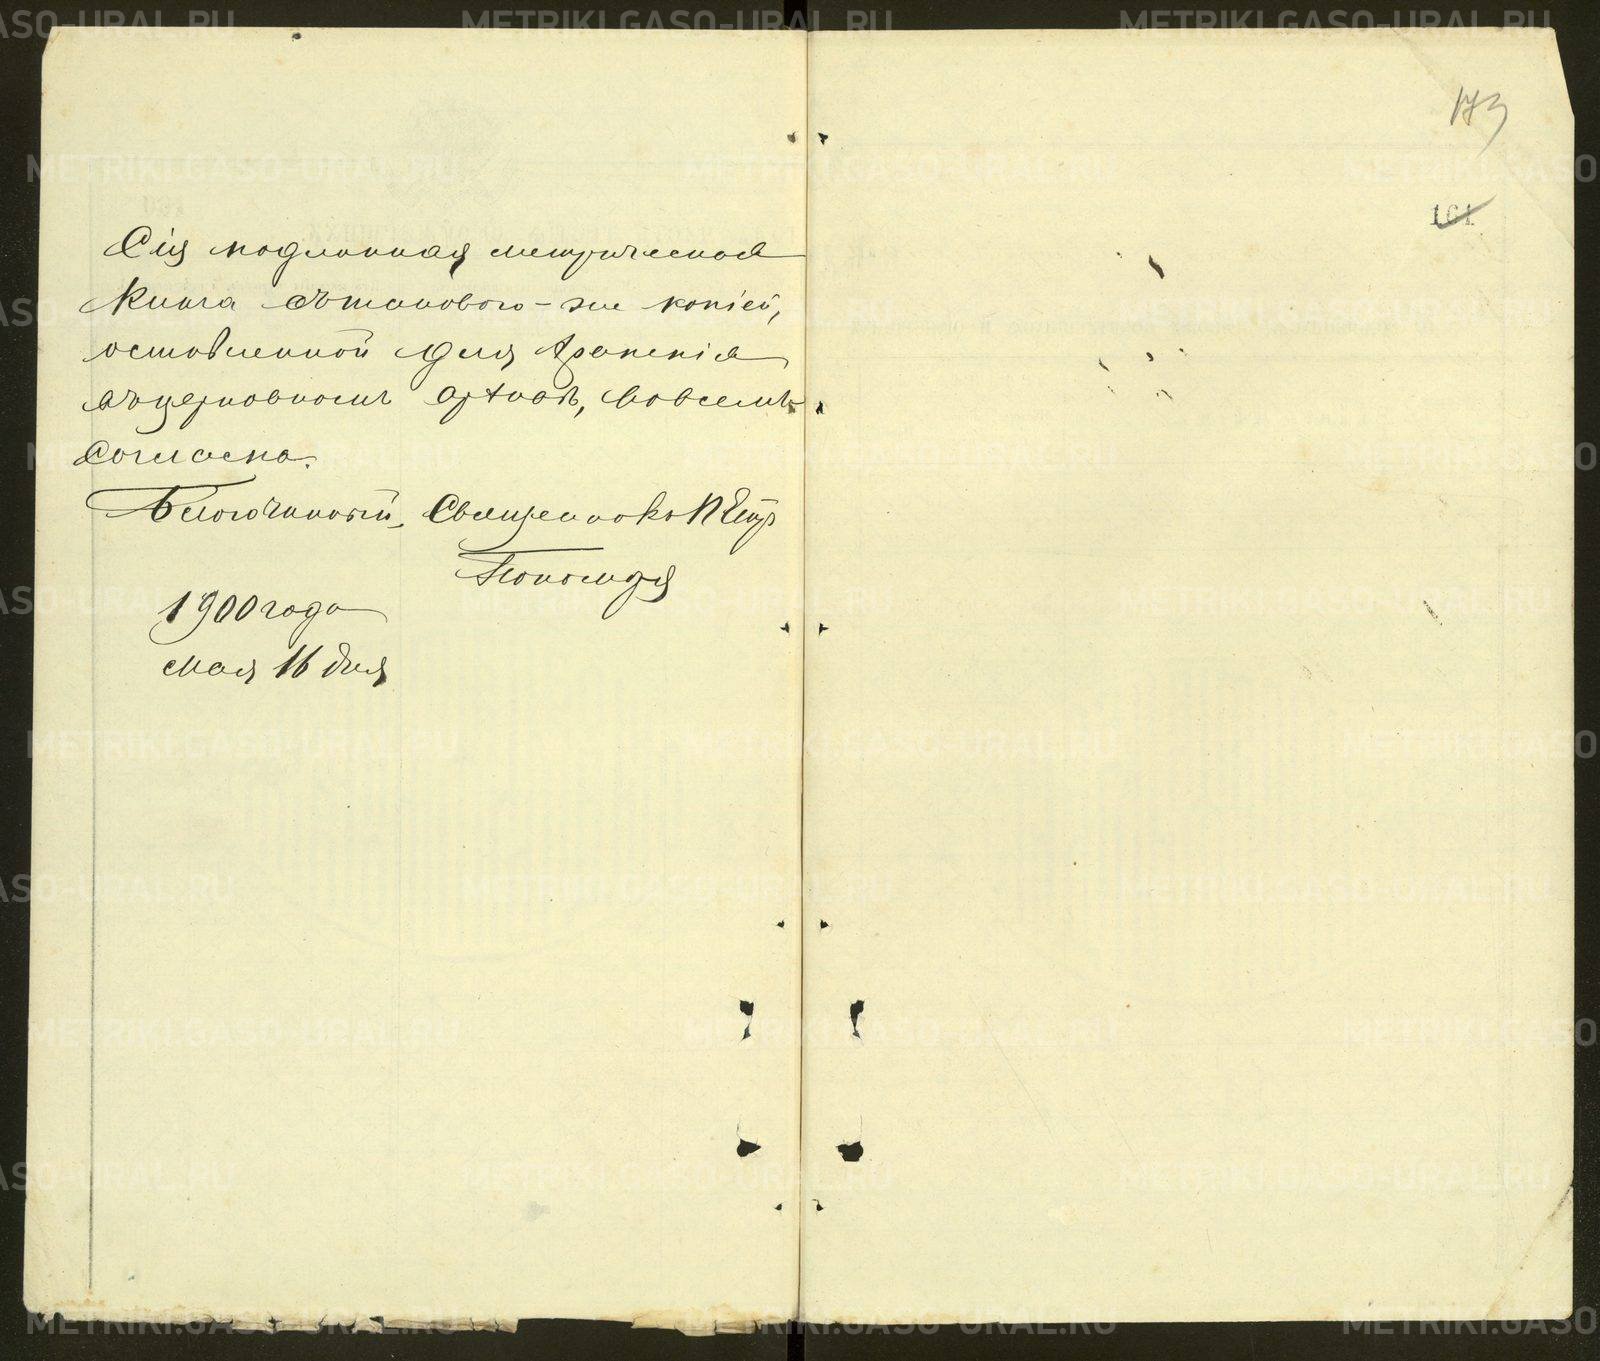 Сія подлинная метрическая
книга съ таковою-же копіей,
оставленной для храненія
въ церковномъ архивѣ, во всемъ
согласна.
Благочинный, Священникъ Петръ
Пономаре
1900 года
мая 16 дня
173
161
METRIKI.GASO-URAL.RU